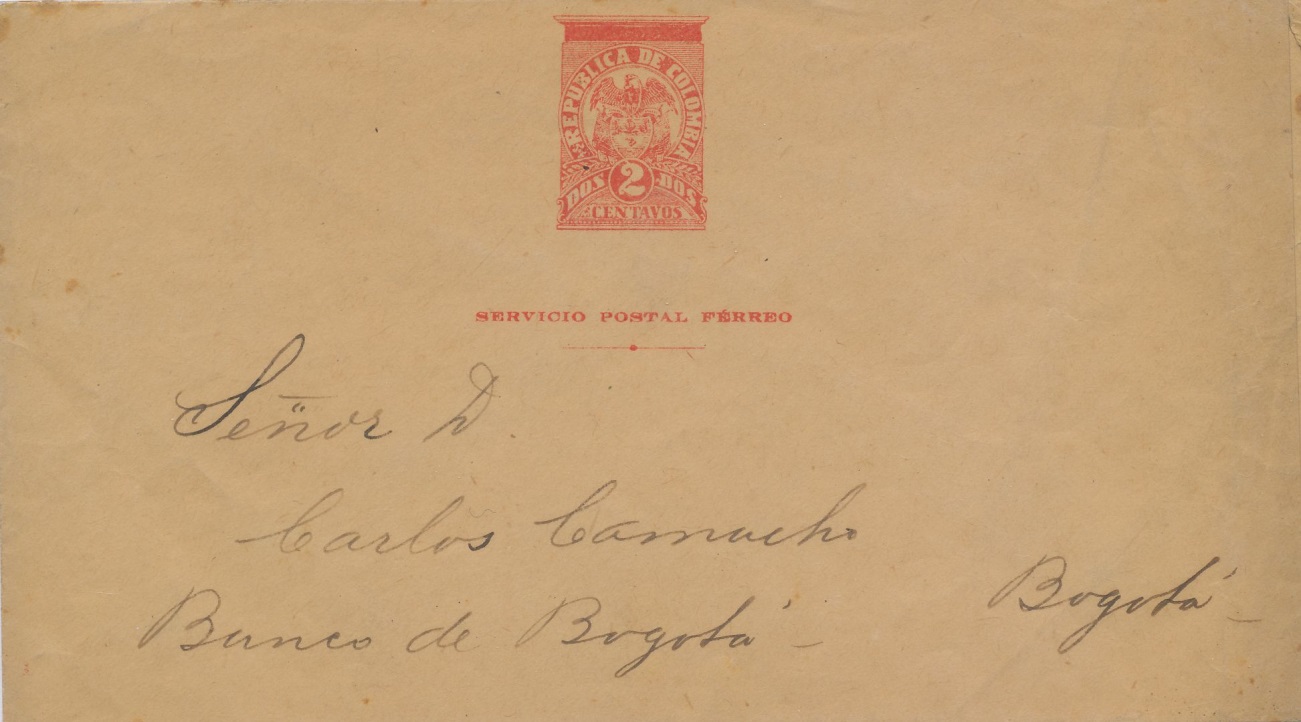 REPUBLICA DE COLOMBIA
DOS 2 DOS
CENTAVOS
SERVICIO POSTAL FÉRREO
Señor D.
Carlos Camacho
Banco de Bogotá -
Bogotá -